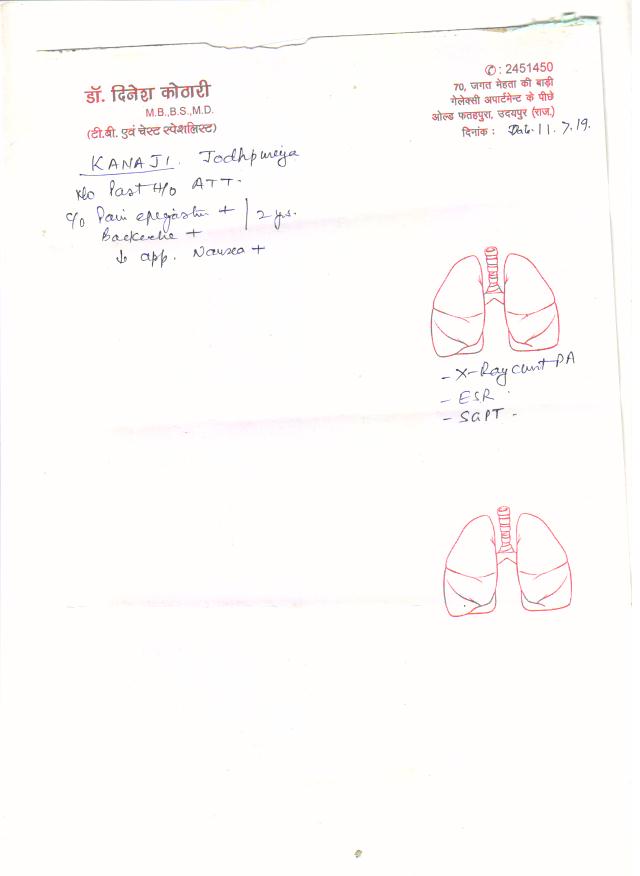 डॉ. दिनेश कोठारी
M.B.,B.S.,M.D.
(टी.बी. एवं चेस्ट स्पेशलिस्ट)
✆ : 2451450
70, जगत मेहता की बाड़ी
गेलेक्सी अपार्टमेन्ट के पीछे
ओल्ड फतहपुरा, उदयपुर (राज.)
दिनांक : Date. 11.7.19.
KANAJI. Jodhpureiya
Past H/o ATT.
C/o Pain epigastri + | 2 yrs.
Backache +
↓ app. Nausea +
- X-Ray chest PA
- ESR
- SGPT.